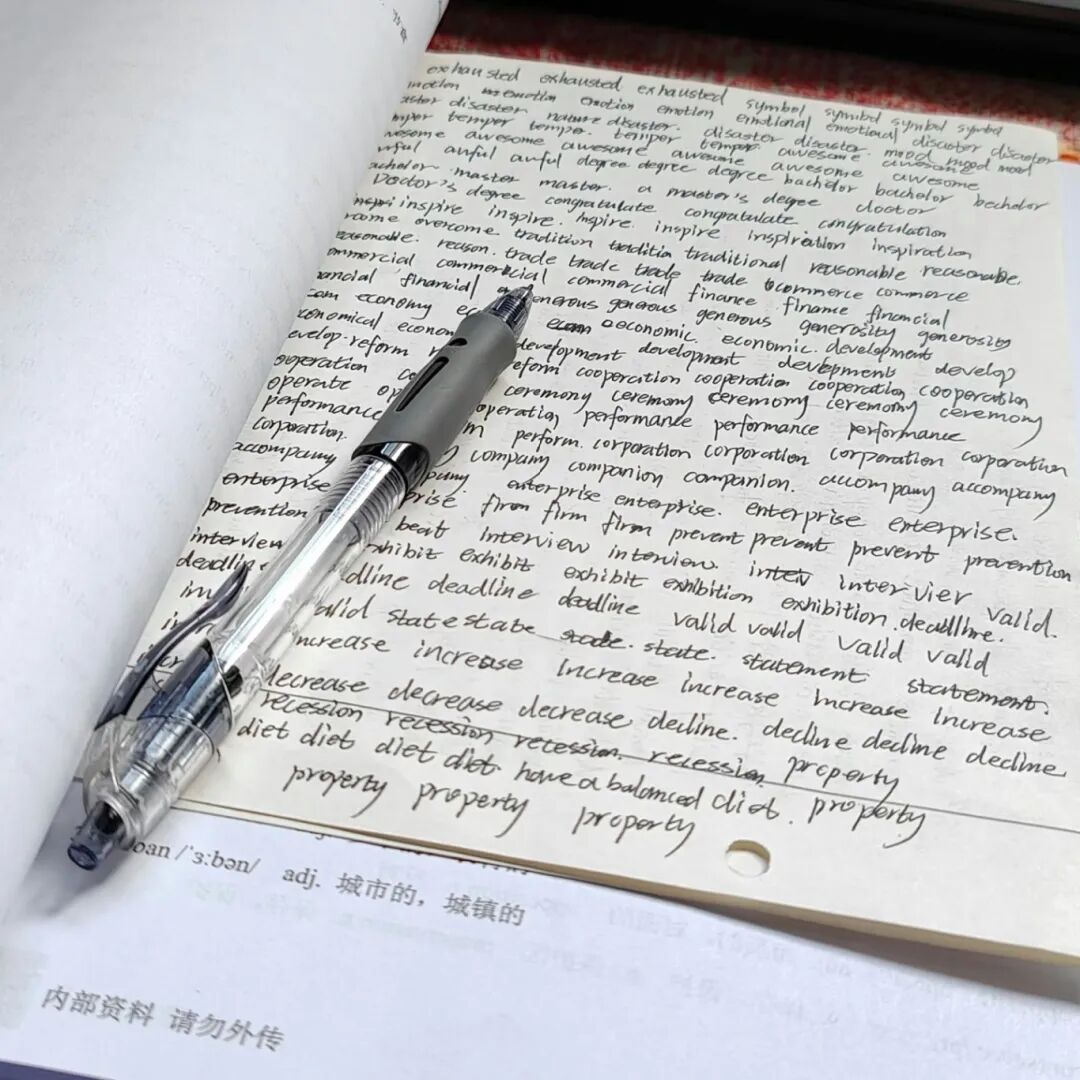 exhausted exhausted exhausted symbol symbol symbol symbol
emotion emotion emotion emotional emotional disaster disaster
disaster nature disaster. disaster disaster. mood mood mood
temper temper. temper temper. awesome awesome
awesome awesome awesome awesome awesome
awful awful degree degree degree bachelor bachelor bachelor
master master. a master's degree doctor
Doctor's degree congratulate congratulate. congratulation
inspire inspire. inspire inspire inspiration inspiration
overcome tradition traditional reasonable reasonable.
reason. trade trade trade trade commerce commerce
commercial commercial finance finance financial
financial generous generous generous generosity generosity
economy economic economic. development
economical development development development develop
reform reform cooperation cooperation cooperation cooperation
ceremony ceremony ceremony ceremony ceremony
operate operation performance performance performance
performance perform. corporation corporation corporation corporation
corporation. company companion companion. accompany accompany
accompany enterprise enterprise. enterprise enterprise.
enterprise firm firm firm prevent prevent prevent prevention
prevention beat interview interview. intervier valid.
interview exhibit exhibit exhibit exhibition exhibition. deadline.
deadline deadline deadline valid valid valid valid
valid state state state. state. statement statement.
increase increase increase increase increase increase
decrease decrease decrease decline. decline decline decline
recession recession recession. recession property
diet diet diet diet. have a balanced diet. property
property property property
/ˈɜ:bən/ adj. 城市的，城镇的
内部资料 请勿外传